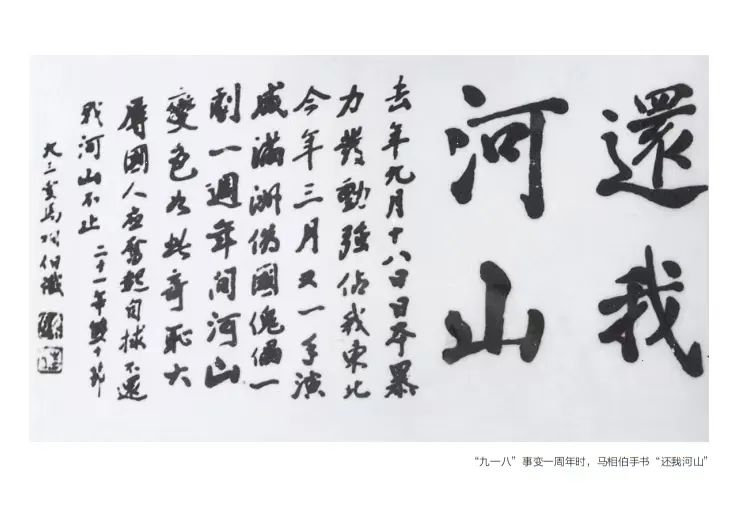 還我
河山
去年九月十八日日本暴
力發動強佔我東北
今年三月又一手演
成滿洲偽國傀儡一
劇一週年間河山
變色如此奇恥大
辱國人應奮起自救不還
我河山不止 二十一年雙十節
九三叟馬相伯識
“九一八”事变一周年时，马相伯手书“还我河山”